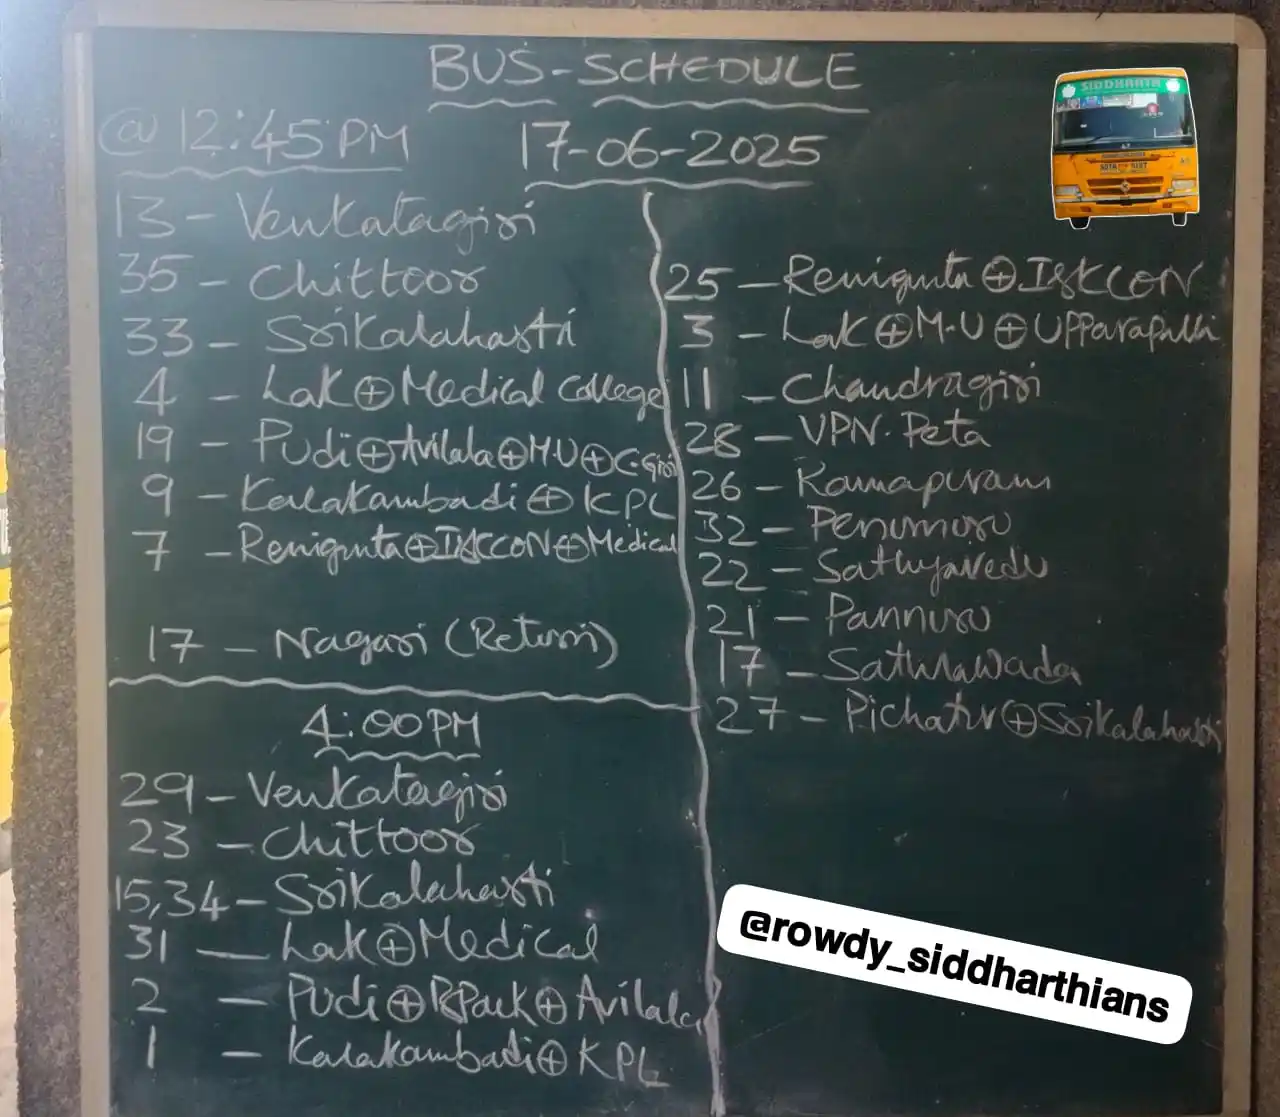 BUS-SCHEDULE
@ 12:45 PM
17-06-2025
13 - Venkatagiri
35 - Chittoor
33 - Srikalahasti
4 - Lak ⊕ Medical College
19 - Pudi ⊕ Avilala ⊕ M.U ⊕ C.Giri
9 - Karakambadi ⊕ KPL
7 - Renigunta ⊕ ISKCON ⊕ Medical
17 - Nagari (Return)
4:00 PM
29 - Venkatagiri
23 - Chittoor
15,34 - Srikalahasti
31 - Lak ⊕ Medical
2 - Pudi ⊕ Park ⊕ Avilala
1 - Karakambadi ⊕ KPL
25 - Renigunta ⊕ ISKCON
3 - Lak ⊕ M.U ⊕ Upparapalli
11 - Chandragiri
28 - VPN. Peta
26 - Ramapuram
32 - Penumuru
22 - Sathyavedu
21 - Pannuru
17 - Sathrawada
27 - Pichatur ⊕ Srikalahasti
SIDDHARTH
@rowdy_siddharthians